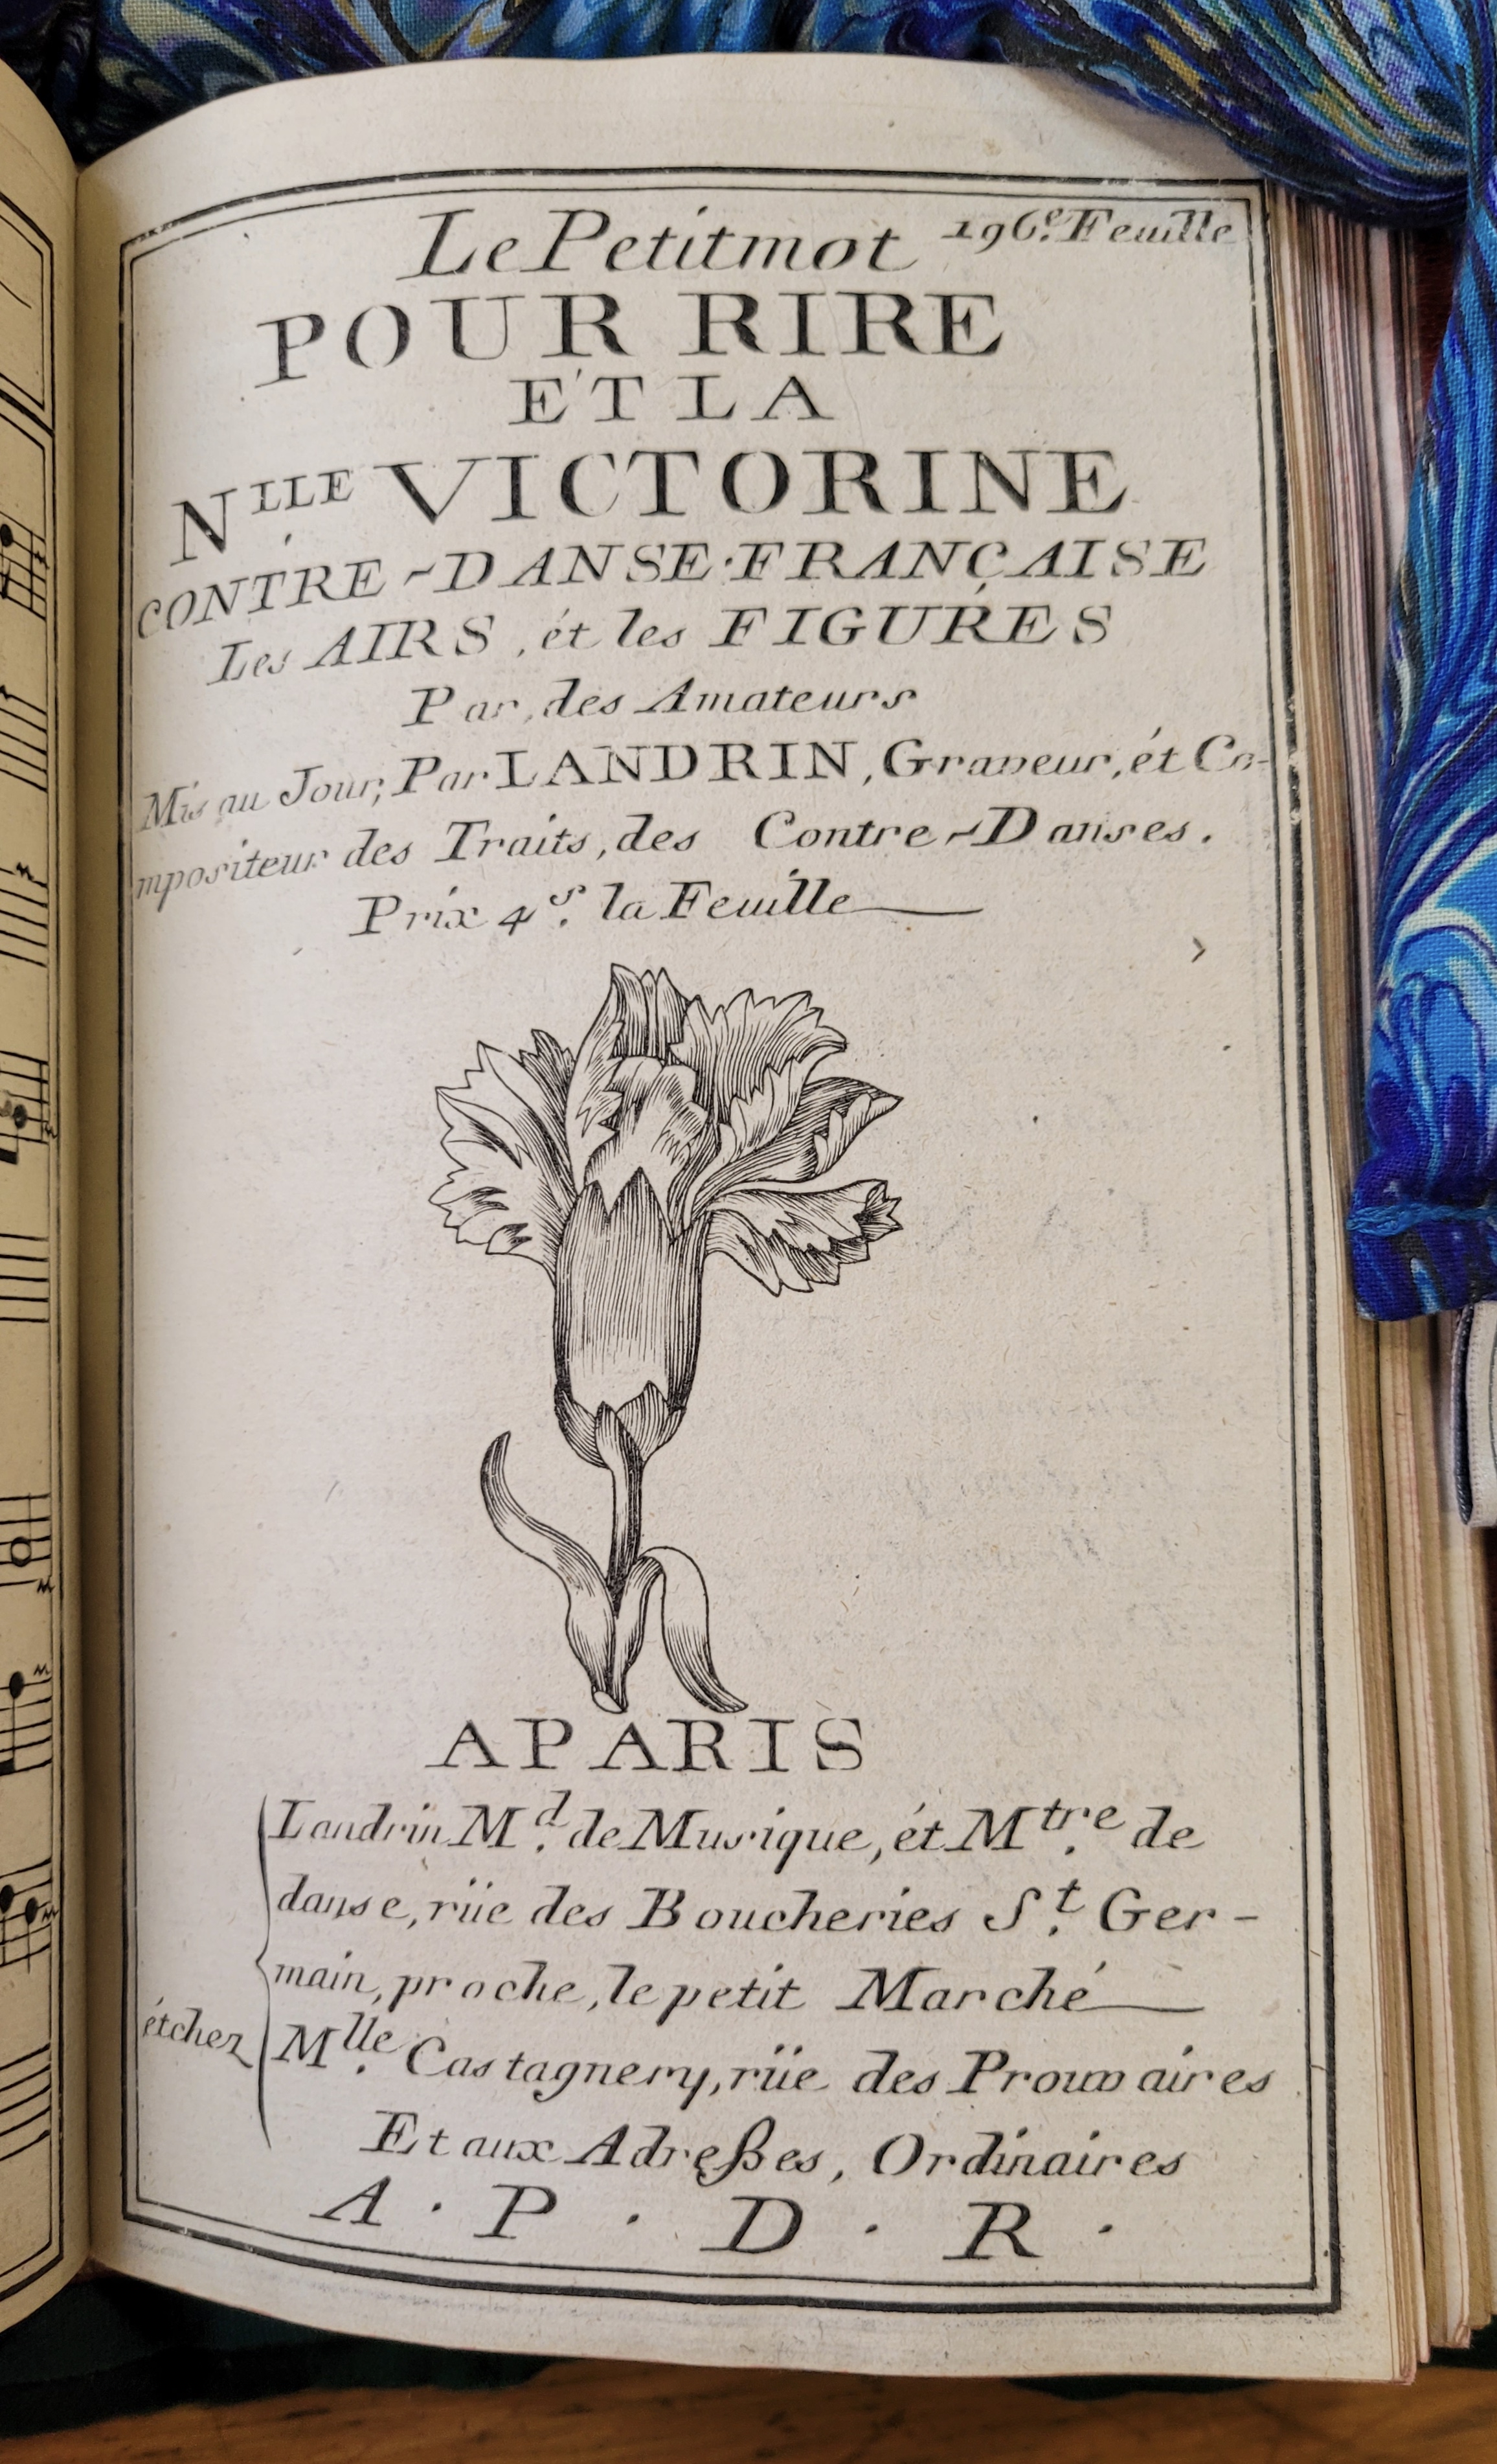 Le Petit mot 196.e Feuille
POUR RIRE
ÉT LA
N.LLE VICTORINE
CONTRE-DANSE FRANÇAISE
Les AIRS, ét les FIGURES
Par, des Amateurs
Mis au Jour, Par LANDRIN, Graveur, ét Co-
mpositeur des Traits, des Contre-Danses.
Prix 4.s la Feuille
A PARIS
Landrin M.d de Musique, ét M.tre de
danse, rüe des Boucheries S.t Ger-
main, proche, le petit Marché
ét chez M.lle Castagnery, rüe des Prouvaires
Et aux Adreßes, Ordinaires
A. P. D. R.